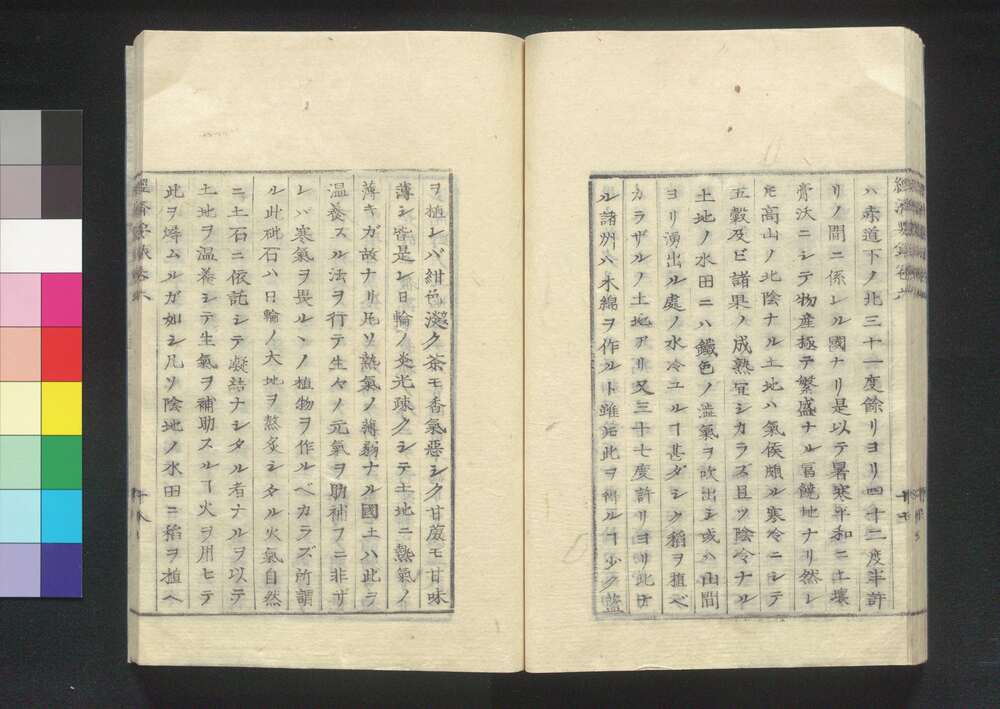 ハ赤道下ノ北三十一度餘リヨリ四十二度半許
リノ間ニ係レル國ナリ是以テ暑寒平和ニ土壤
膏沃ニシテ物産極テ繁盛ナル冨饒地ナリ然レ
𪜈高山ノ北陰ナル土地ハ氣侯頗ル寒冷ニシテ
五穀及ビ諸果ノ成熟冝シカラズ且ツ陰冷ナル
土地ノ水田ニハ鐵色ノ澁氣ヲ吹出シ或ハ山間
ヨリ湧出ル處ノ水冷ユルヿ甚ダシク稻ヲ植ベ
カラザルノ土地アリ又三十七度許リヨリ此ナ
ル諸洲ハ木綿ヲ作ルト雖𪜈此ヲ得ルヿ少ク藍
ヲ植レバ紺色淡ク茶モ香氣惡シク甘蔗モ甘味
薄シ皆是レ日輪ノ炎光疎クシテ土地ニ熱氣ノ
薄キガ故ナリ凡ソ熱氣ノ薄弱ナル國土ハ此ラ
温養スル法ヲ行テ生々ノ元氣ヲ助補フニ非ザ
レバ寒氣ヲ畏ルヽノ植物ヲ作ルベカラズ所謂
ル此砒石ハ日輪ノ大地ヲ熬炙シタル火氣自然
ニ土石ニ依託シテ凝結ナシタル者ナルヲ以テ
土地ヲ温養シテ生氣ヲ補助スルヿ火ヲ用ヒテ
此ヲ烽ムルガ如シ凡ソ陰地ノ水田ニ稻ヲ植ヘ